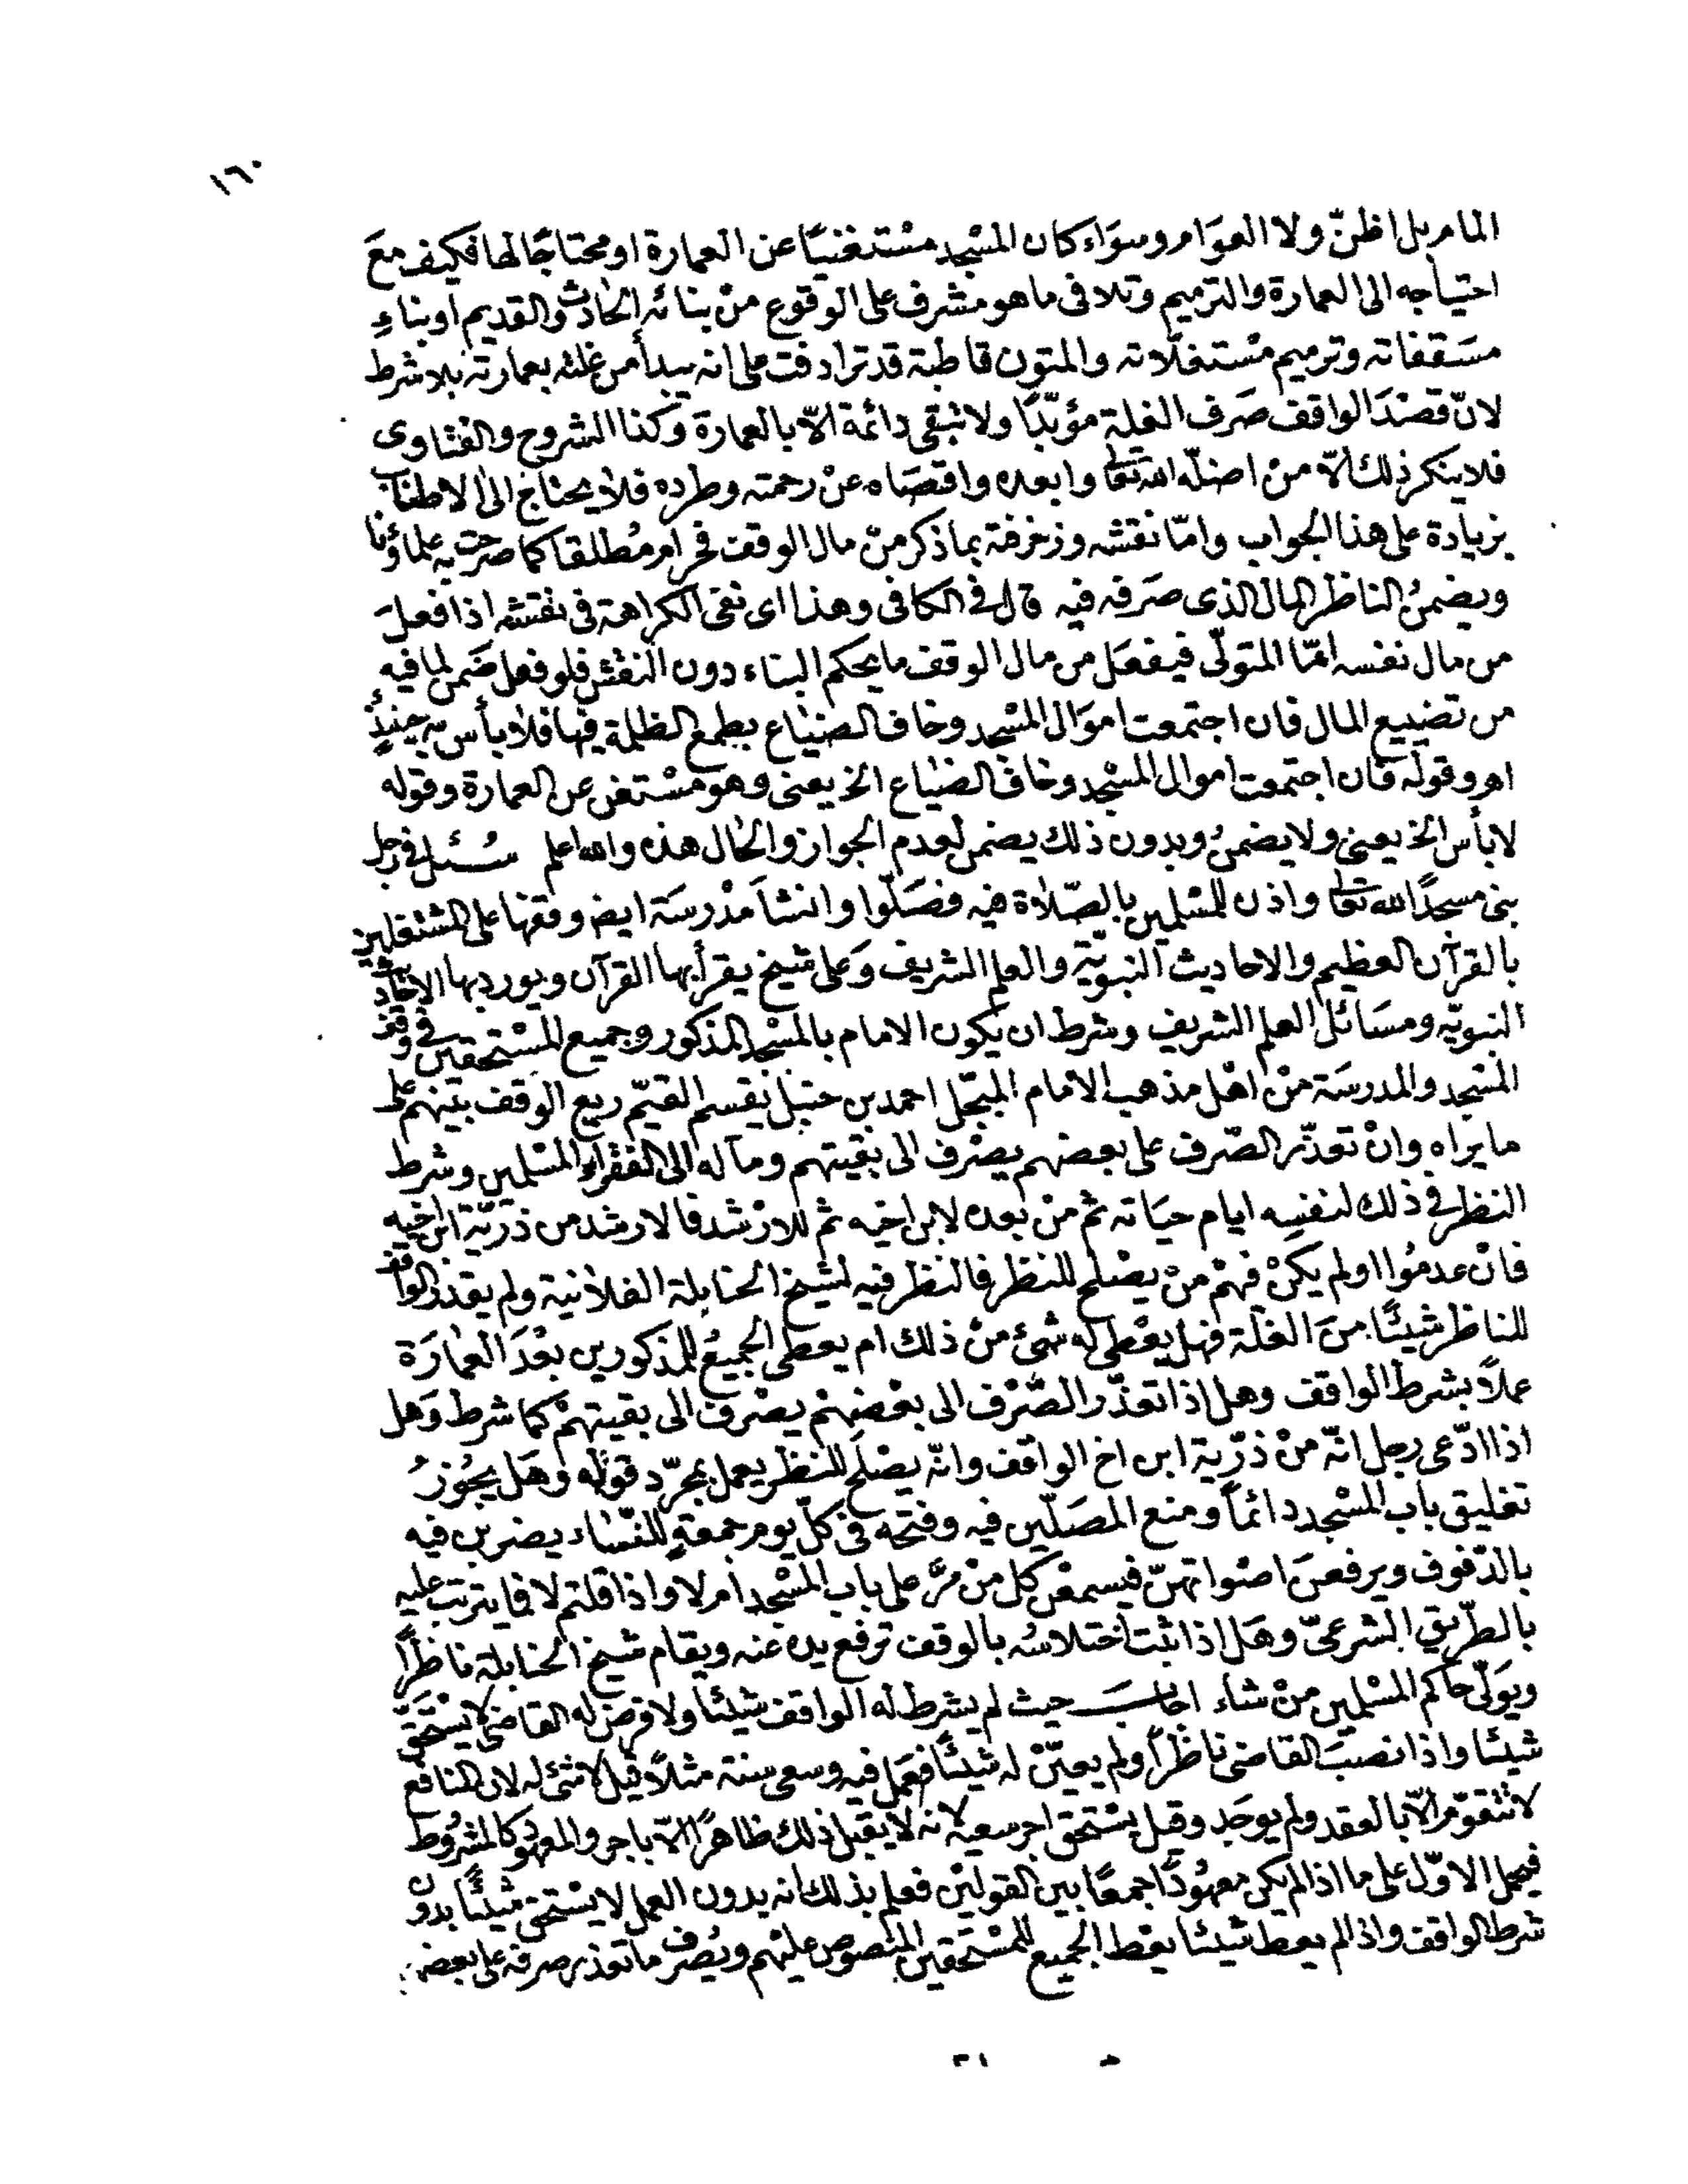 ١٦٠
المام بل اظنّ ولا العوَام وسوَاء كان المسْجد مسْتغنيًا عن العمارة او محتاجًا لها فكيف معَ
احتياجه الى العمارة والترميم وتلافى ما هو مشرف على الوقوع منْ بنائه الحادث والقديم او بناءِ
مسَقفاته وترميم مسْتغلّاته والمتون قاطبة قد ترادفت على انه يبدأ من غلته بعمارته بلا شرط
لانّ قصْدَ الواقف صَرف الغلة مؤبّدًا ولا تبقى دائمة الّا بالعمارة وكذا الشروح والفتاوى
فلا ينكر ذلك الّا منْ اضلّه الله تعالى وابعده واقصَاه عنْ رحمته وطرده فلا يحتاج الى الاطناب
بزيادة على هذا الجواب وامّا نقشه وزخرفة بما ذكر منْ مال الوقف فحرام مُطلقا كما صرحت به علماؤنا
ويضمنُ الناظر المال الذى صَرفه فيه قال فى الكافى وهذا اى نفى الكراهة فى نقشه اذا فعلَ
من مال نفسه امّا المتولّى فيفعَل من مال الوقف ما يحكم البناء دون النقش فلو فعل ضَمن لما فيه
من تضييع المال فان اجتمعت اموَال المسْجد وخاف الضيَاع بطمع الظلمة فيها فلا بأس به حينئذٍ
اهـ وقوله فان اجتمعت اموال المسْجد وخاف الضيَاع الخ يعنى وهو مسْتغن عن العمارة وقوله
لا بأس الخ يعنى ولا يضمنُ وبدون ذلك يضمن لعدم الجواز والحال هذه والله اعلم سُئل فى رجل
بنى مسجدًا لله تعالى واذن للمسْلمين بالصّلاة فيه فصَلّوا وانشأ مدْرسَة ايضا وقفها على المشتغلين
بالقرآن العظيم والاحاديث النبويّة والعلم الشريف وَعلى شيخ يقرأ بها القرآن ويورد بها الاحاديث
النبويّه ومسَائل العلم الشريف وشرط ان يكون الامام بالمسْجد المذكور وجميع المسْتحقين فى وقف
المسْجد والمدرسَة منْ اهْل مذهب الامام المبجّل احمد بن حنبل يقسم القيّم ريع الوقف بيْنهم على
ما يراه وانْ تعذّر الصّرف على بعضهم يصْرف الى بقيتهم ومآله الى الفقراء المسْلمين وشرط
النظر فى ذلك لنفسِه ايام حيَاته ثم منْ بعده لابن اخيه ثم للارْشد فالارشد من ذرّيّة ابن اخيه
فانْ عدمُوا او لم يكنْ فيهمْ منْ يصْلح للنظر فالنظر فيه لشيخ الحنابلة الفلانية ولم يقدر الواقف
للناظر شيئًا منَ الغلّة فهل يعْطى له شئ منْ ذلك ام يعطى الجميعُ للمذكورين بعْدَ العمارَة
عملاً بشرط الواقف وهل اذا تعذّر الصَّرْف الى بعْضهمْ يصْرف الى بقيتهمْ كما شرط وَهل
اذا ادّعى رجل انّه منْ ذرّيّة ابن اخ الواقف وانّه يصْلح للنظر يعمل بمجرّد قوله وَهَل يجُوزُ
تغليق باب المسْجد دائماً ومنع المصَلّين فيه وفتحه فى كلّ يوم جمعةٍ للنّسَاء يضربن فيه
بالدّفوف ويرفعنَ اصْواتهنّ فيسمعْن كل منْ مرَّ على باب المسْجد ام لا واذا قلتم لا فما يترتب عليه
بالطّريق الشرعىّ وهَل اذا ثبت اختلاسُه بالوقف ترفع يده عنه ويقام شيخ الحنابلة ناظرًا
ويَولّى حاكم المسْلمين منْ شاء اجابَ حيث لم يشرط له الواقف شيئا ولا فرض له القاضى لا يسْتحقّ
شيئا واذا نصبَ القاضى ناظراً ولم يعيّنْ له شيئًا فعمل فيه وسعى سنة مثلاً قيل لا شئ له لان المنافع
لا تتقوّم الّا بالعقد ولم يوجَد وقيل يسْتحق اجر سعيه لانه لا يقبل ذلك ظاهرًا الّا باجر والمعهود كالمشرُوط
فيحمل الاوّل على ما اذا لم يكن معهُودًا جمعًا بين القولينْ فعلم بذلك انه بدون العمل لا يسْتحق شيئًا بدون
شرط الواقف واذا لم يعط شيئا يعْط الجميع للمسْتحقين المنصوص عليْهم ويُصْرف ما تعذر صرفه على بعضهم